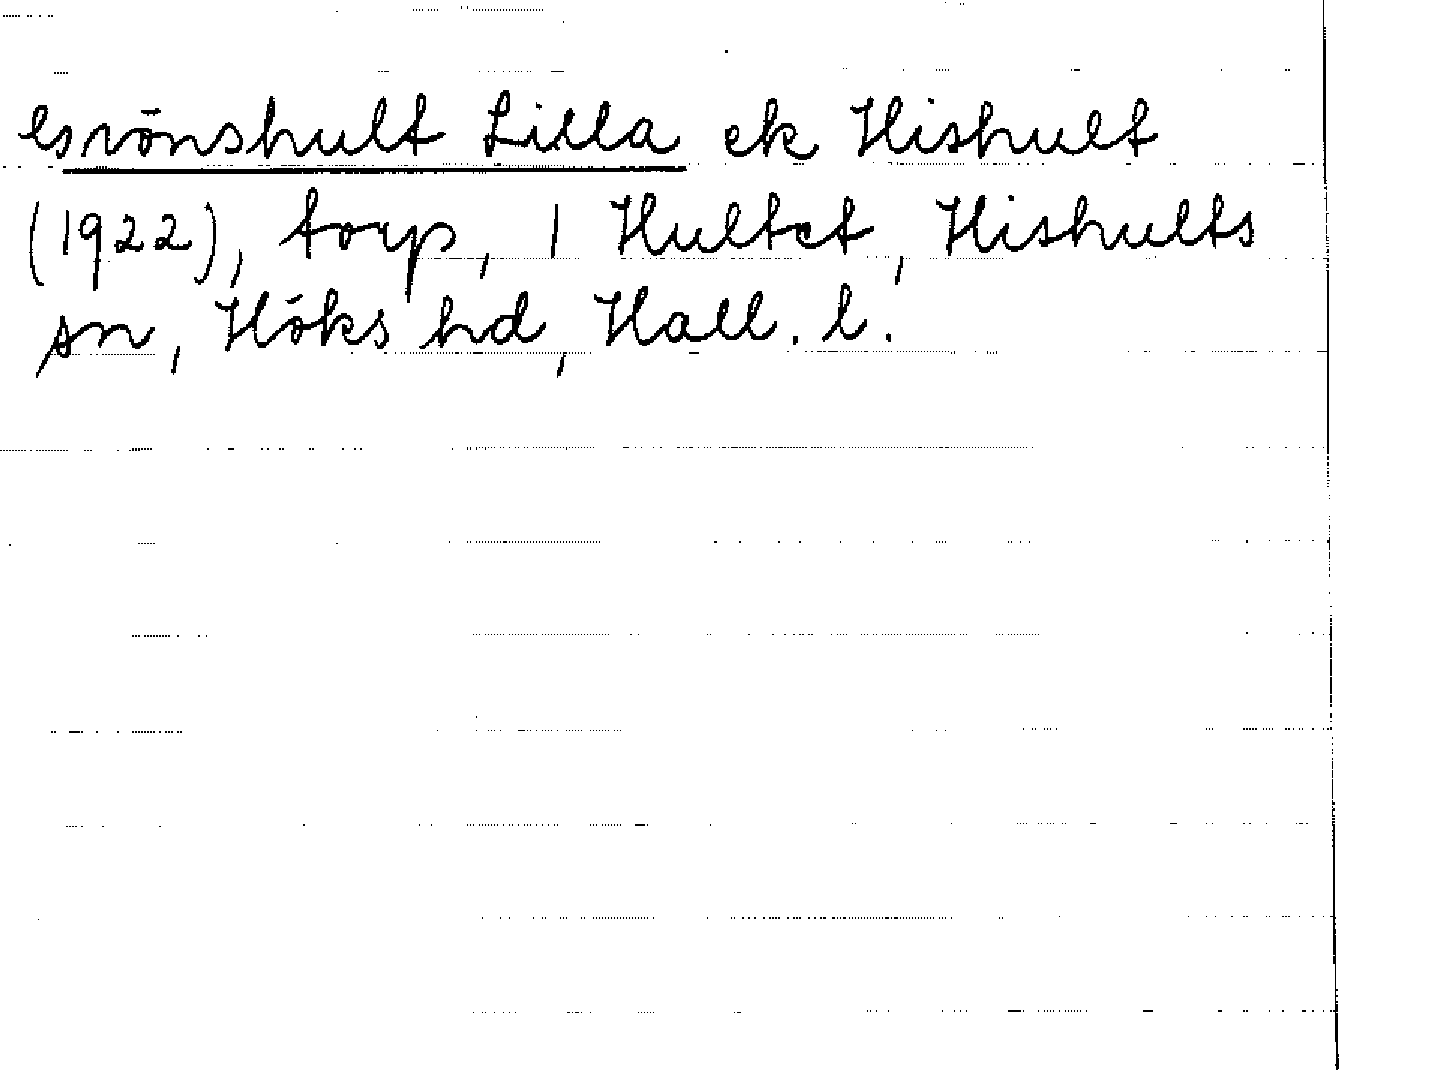 Grönshult Lilla ek Hishult
(1922), torp, 1 Hultet, Hishults
sn, Höks hd, Hall. l.